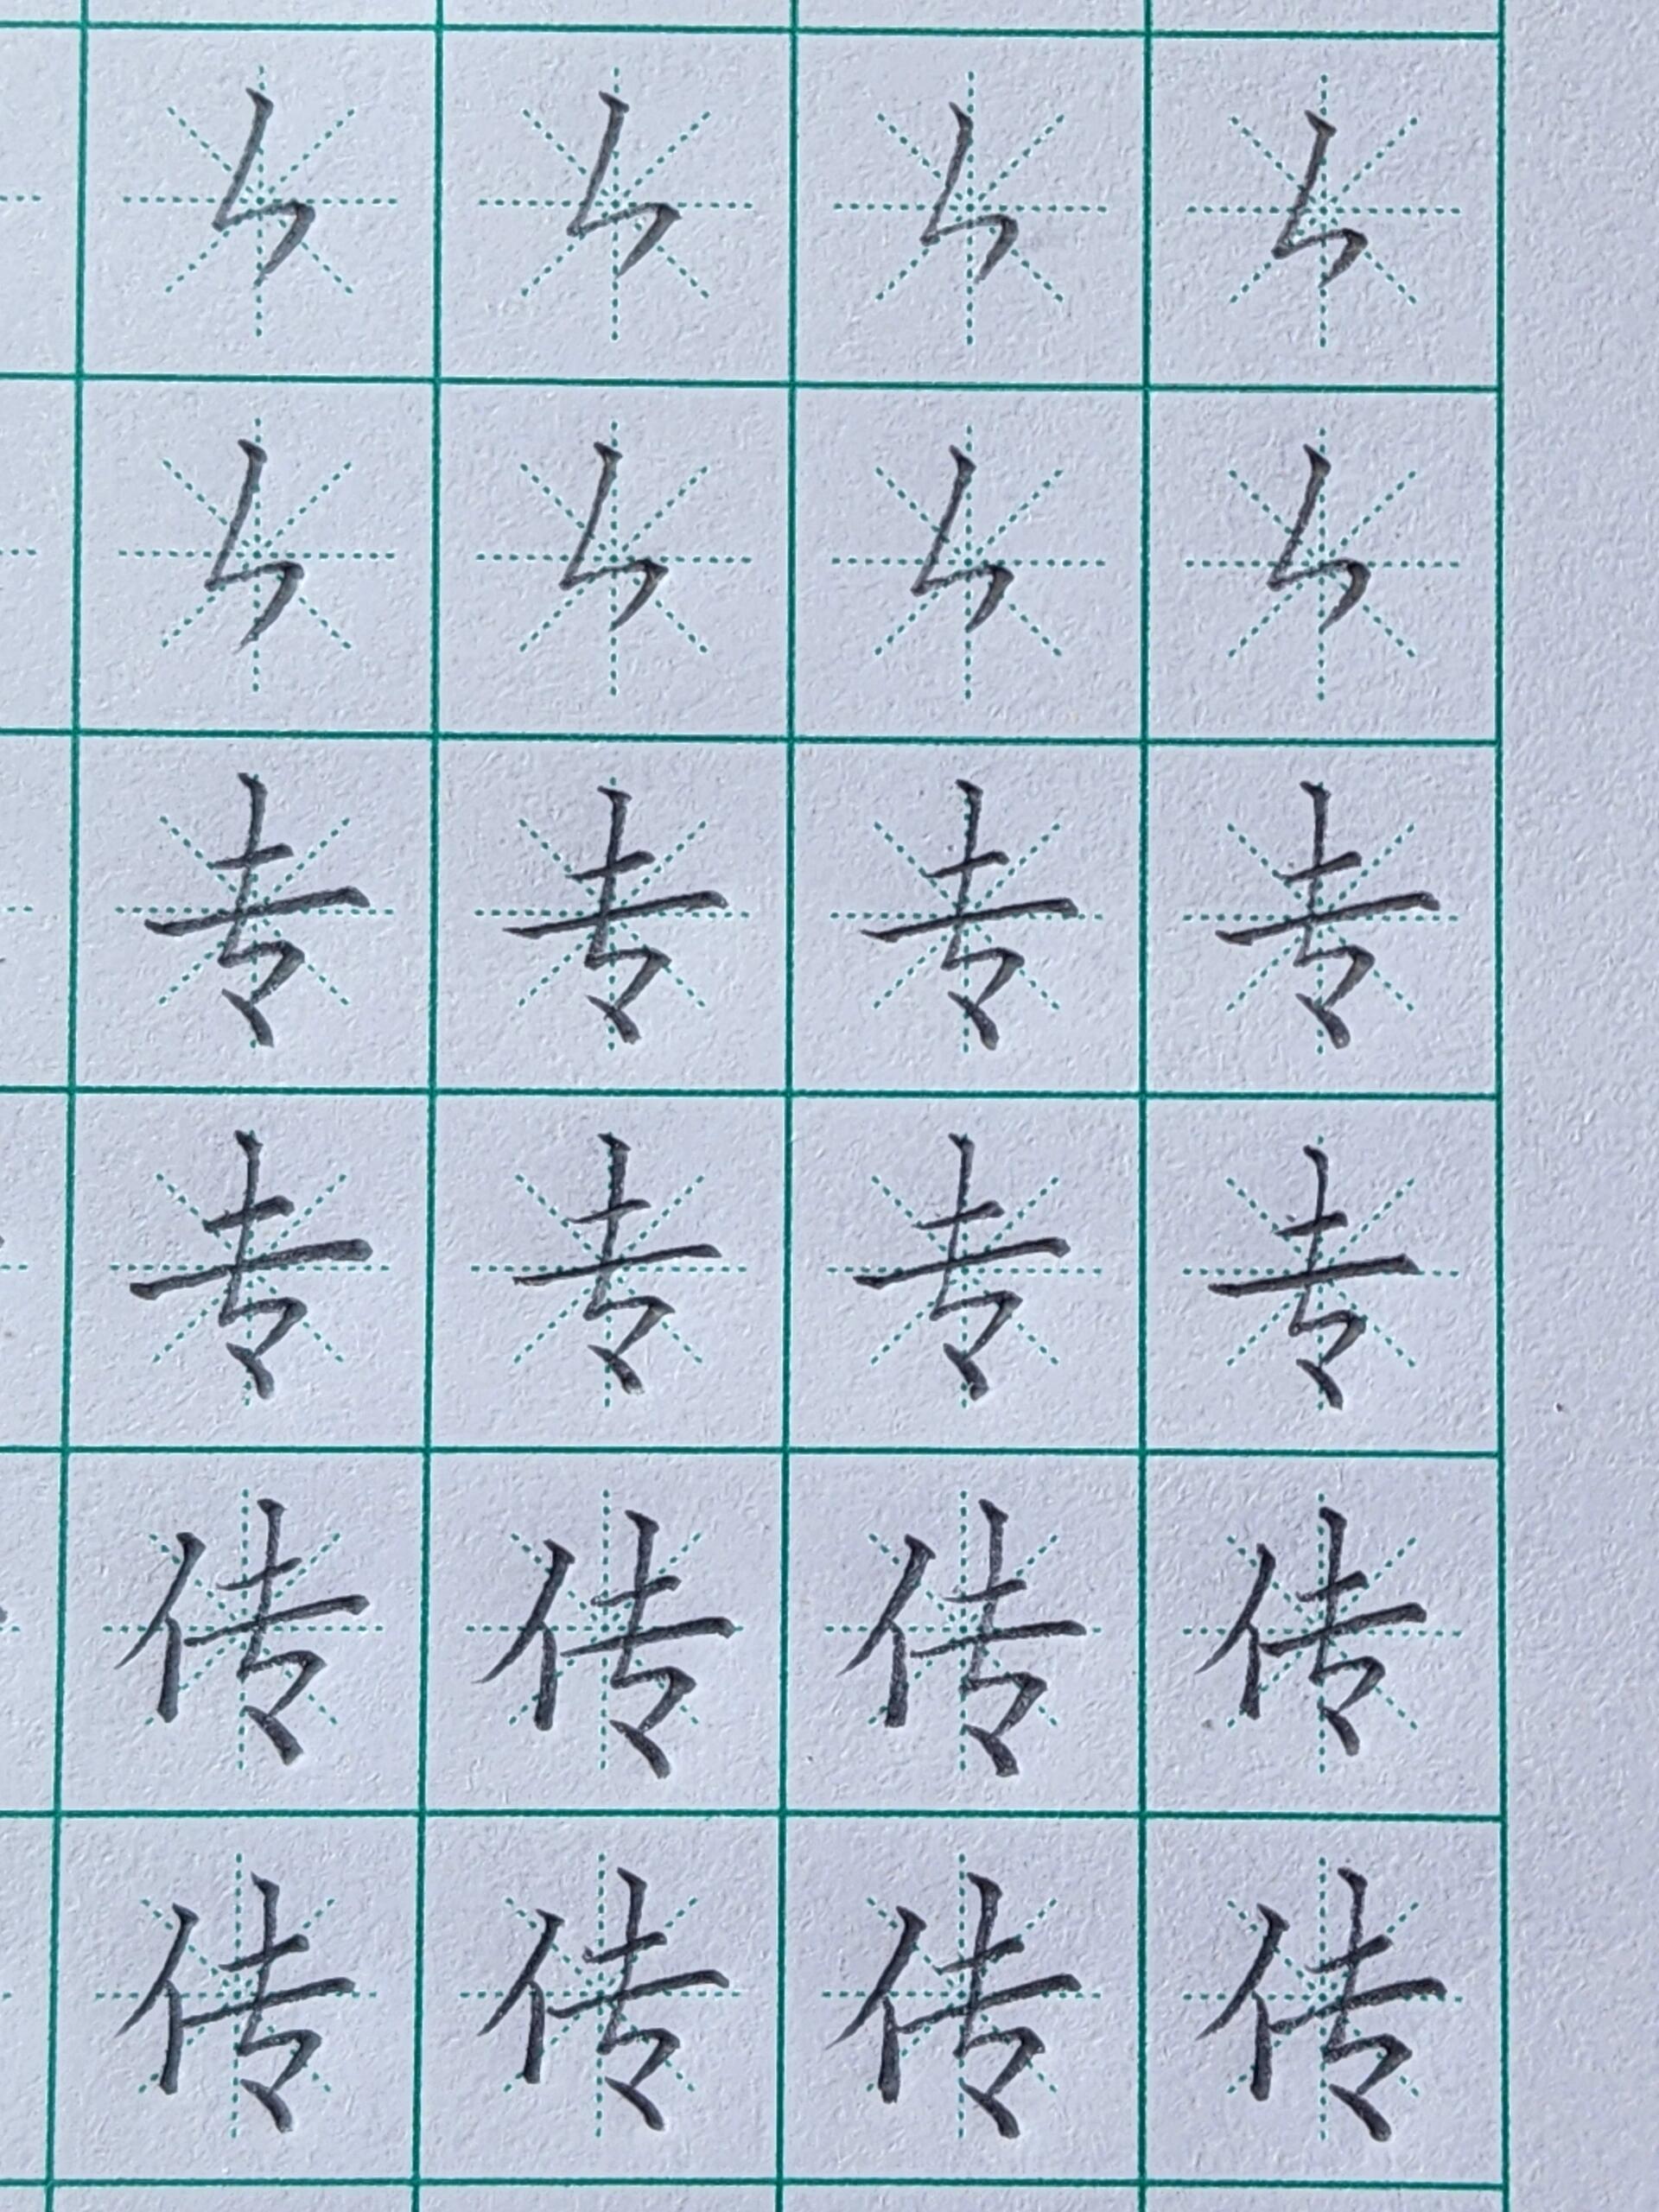 ㄣ ㄣ ㄣ ㄣ
ㄣ ㄣ ㄣ ㄣ
专 专 专 专
专 专 专 专
传 传 传 传
传 传 传 传